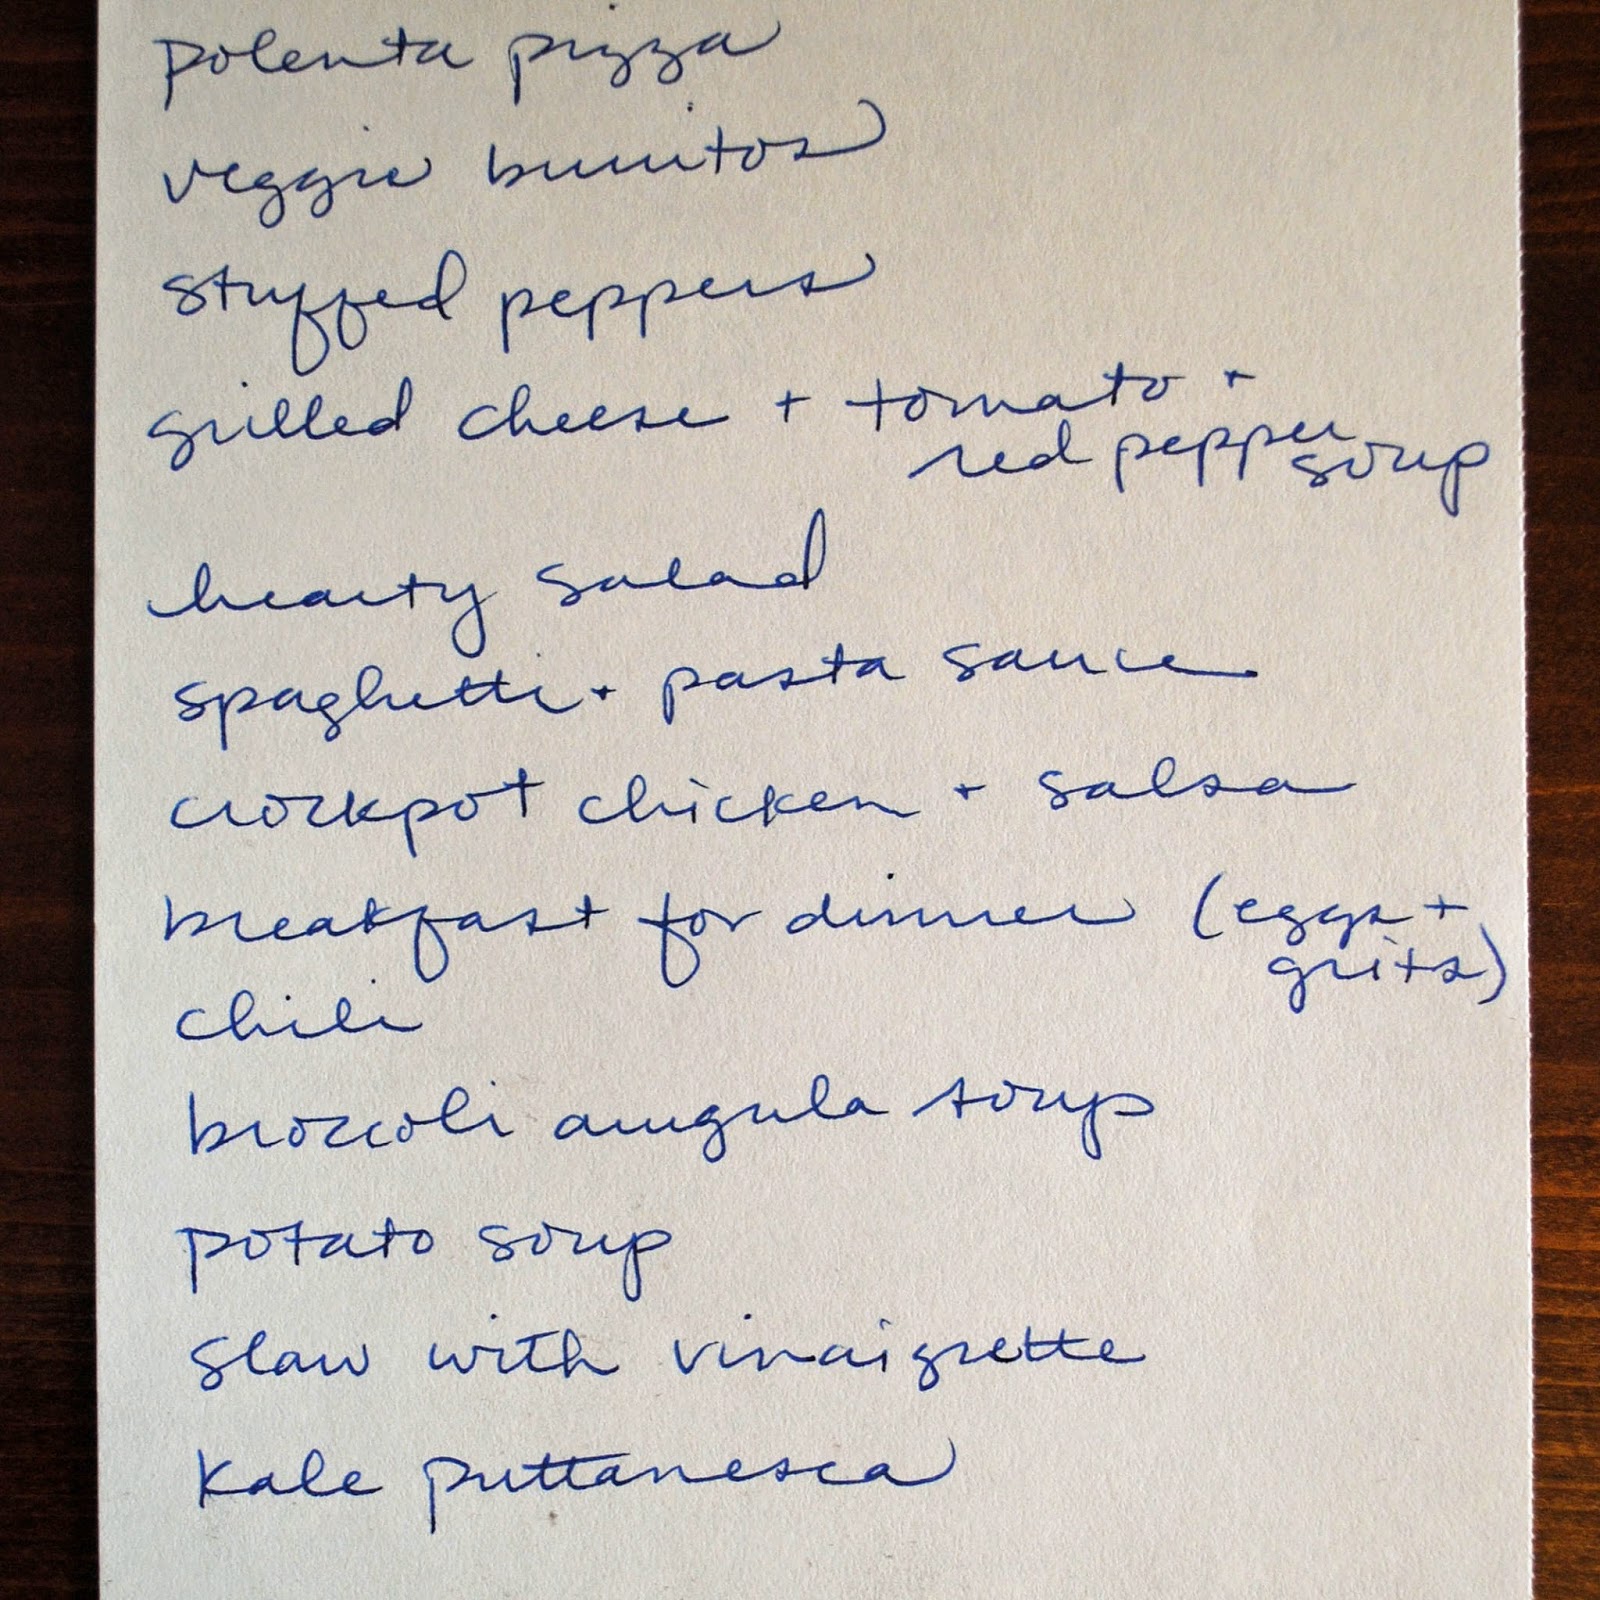 polenta pizza
veggie burritos
stuffed peppers
grilled cheese + tomato +
red pepper soup
hearty salad
spaghetti + pasta sauce
crockpot chicken + salsa
breakfast for dinner (eggs +
grits)
chili
broccoli arugula soup
potato soup
slaw with vinaigrette
kale puttanesca